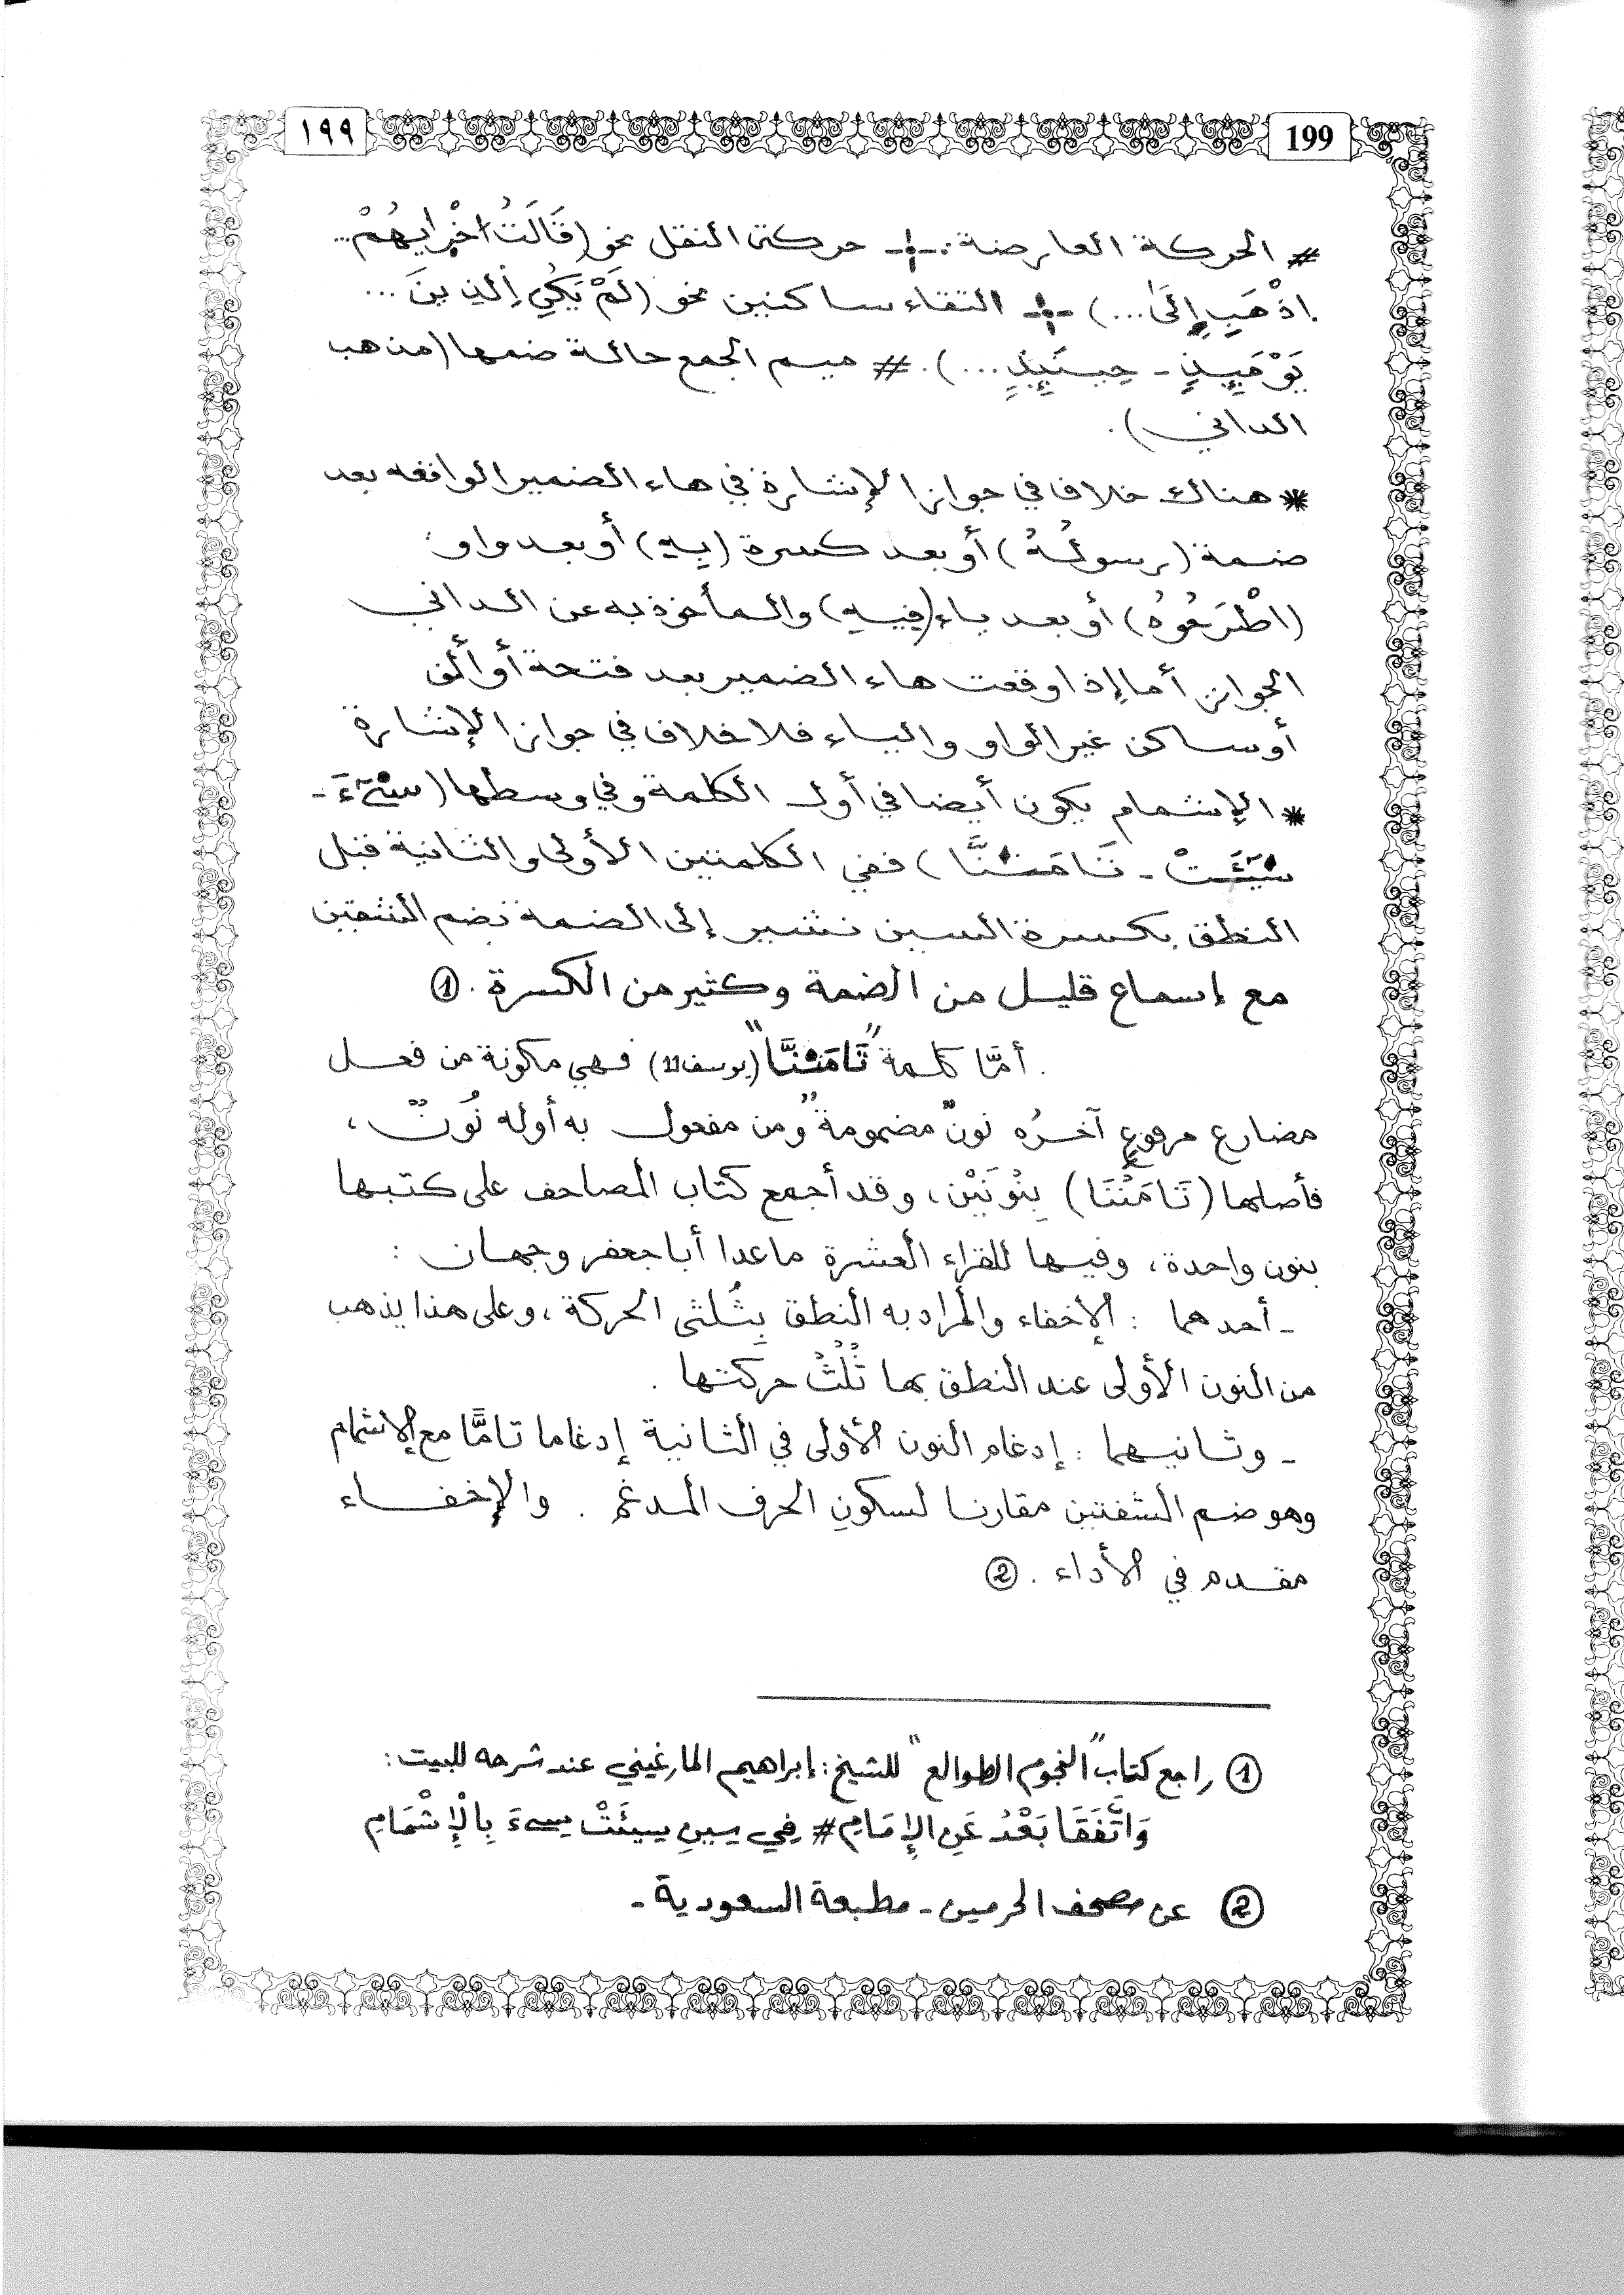 ١٩٩
199
# الحركة العارضة: -!- حركتى النقل نحو (قَالَتُ اخْرايهُمْ..
اذْهَبِ إِلَىٰ ...) -!- التقاء ساكنين نحو (لَمْ يَكُنِ الذِينَ ...
يَوْمَئِذٍ - حِينَئِذٍ ...). # ميم الجمع حالة ضمها (مذهب
الداني).
* هناك خلاف في جواز الإشارة في هاء الضمير الواقعه بعد
ضمة (رسولُهُ) أو بعد كسرة (بِهِ) أو بعد واو:
(اطْرَحُوهُ) أو بعد ياء (فِيهِ) والمأخوذ به عن الداني
الجواز، أما إذا وقعت هاء الضمير بعد فتحة أو ألف
أو ساكن غير الواو والياء فلا خلاف في جواز الإشارة
* الإشمام يكون أيضا في أول الكلمة وفي وسطها (سِيٓءَ -
سِيٓئَتْ - تَامَننَّا) ففي الكلمتين الأولى والثانية قبل
النطق بكسرة السين نشير إلى الضمة بضم الشفتين
مع إسماع قليل من الضمة وكثير من الكسرة. ①
. أمَّا كلمة "تَامَننَّا" (يوسف 11) فهي مكونة من فعل
مضارع مرفوعٍ آخرُه نونٌ مضمومةٌ ومن مفعول به أوله نُونٌ،
فأصلها (تَامَنُنَا) بِنُونَيْن، وقد أجمع كتاب المصاحف على كتبها
بنون واحدة، وفيها للقراء العشرة ماعدا أبا جعفر وجهان:
- أحدهما: الإخفاء والمراد به النطق بِثُلثى الحركة، وعلى هذا يذهب
من النون الأولى عند النطق بها ثُلُثُ حركتها.
- وثانيهما: إدغام النون الأولى في الثانية إدغاما تامًّا مع الإشمام
وهو ضم الشفتين مقارنا لسكونِ الحرف المدغم. والإخفاء
مقدم في الأداء. ②
① راجع كتاب "النجوم الطوالع" للشيخ: إبراهيم المارغيني عند شرحه للبيت:
وَاتَّفَقَا بَعْدُ عَنِ الإِمَامِ # فِي سِينِ سِيئَتْ سِيءَ بِالْإِشْمَامِ
② عن مصحف الحرمين - مطبعة السعودية -